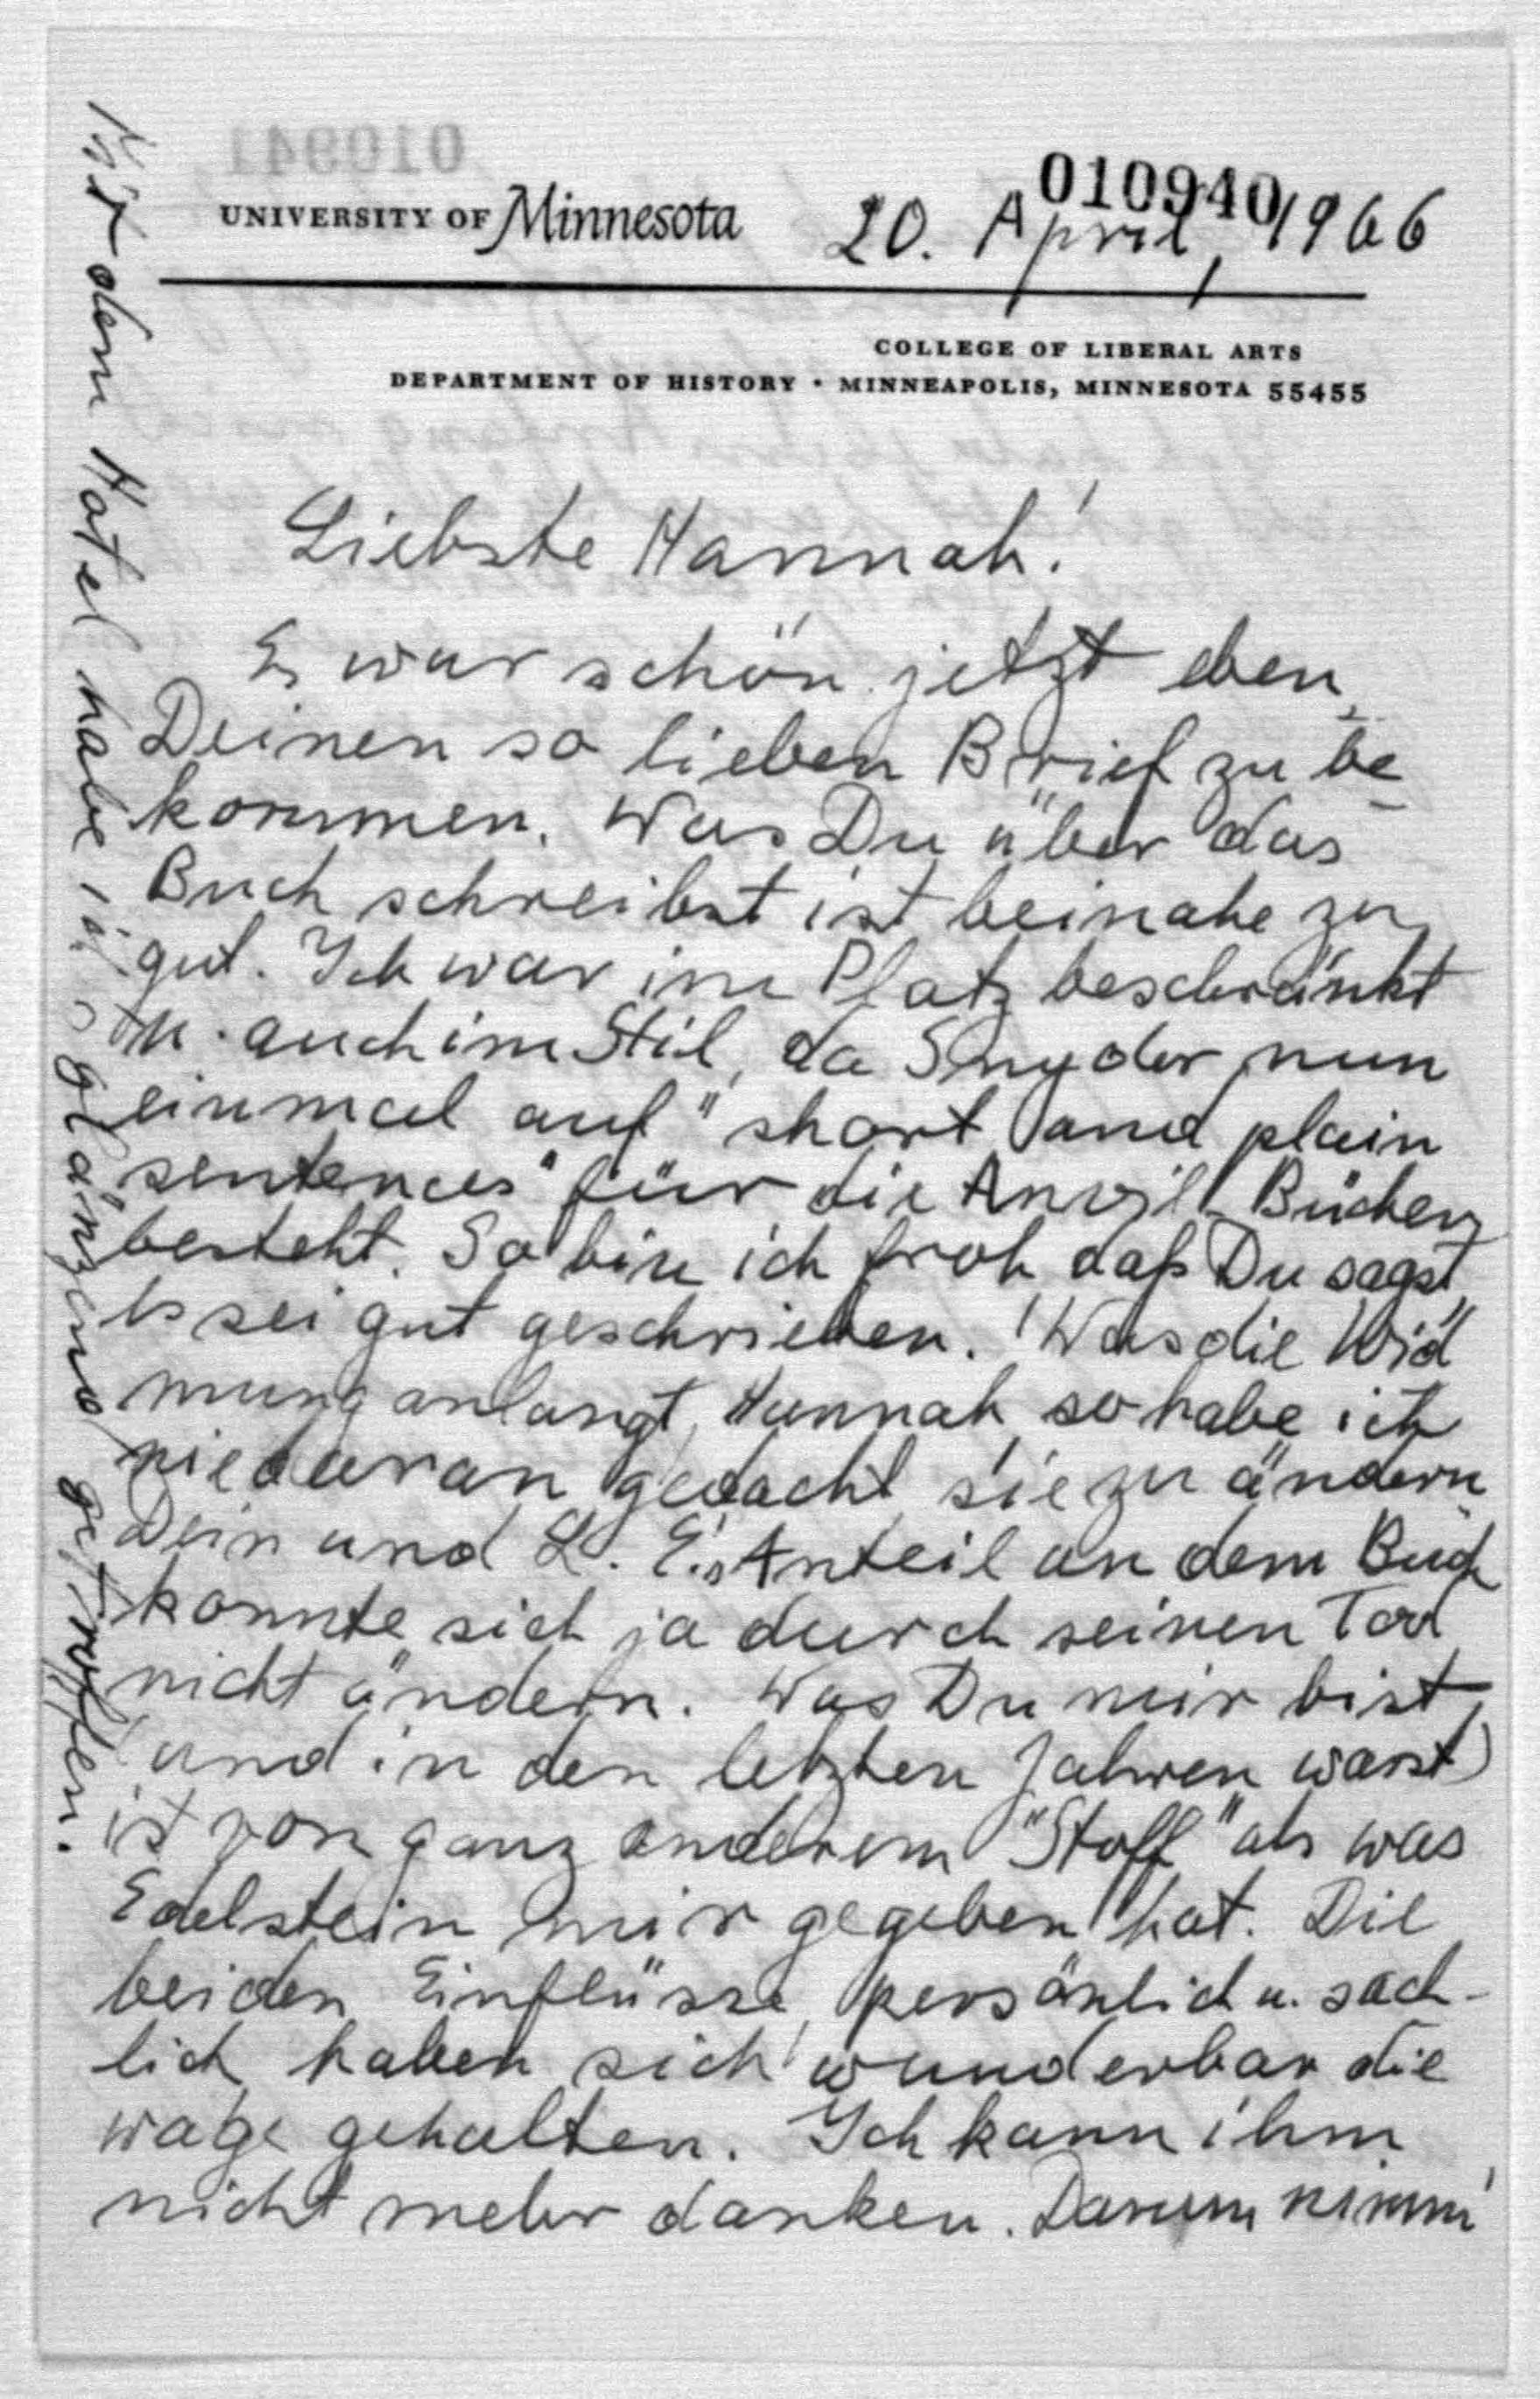 010941
010940
UNIVERSITY OF Minnesota 20. April, 1966
COLLEGE OF LIBERAL ARTS
DEPARTMENT OF HISTORY • MINNEAPOLIS, MINNESOTA 55455
Liebste Hannah!
Es war schön jetzt eben,
Deinen so lieben Brief zu be-
kommen. Was Du über das
Buch schreibst ist beinahe zu
gut. Ich war im Platz beschränkt
u. auch im Stil, da Snyder nun
einmal auf "short and plain
sentences" für die Anvil-Bücher
besteht. So bin ich froh daß Du sagst
es sei gut geschrieben. Was die Wid-
mung anlangt, Hannah, so habe ich
nie daran gedacht sie zu ändern
Dein und L. E.s Anteil an dem Buch
konnte sich ja durch seinen Tod
nicht ändern. Was Du mir bist
(und in den letzten Jahren warst)
ist von ganz anderem "Stoff" als was
Edelstein mir gegeben hat. Die
beiden Einflüsse, persönlich u. sach-
lich haben sich wunderbar die
wage gehalten. Ich kann ihm
nicht mehr danken. Darum nimm'
Mit dem Hotel habe ich's glänzend getroffen.